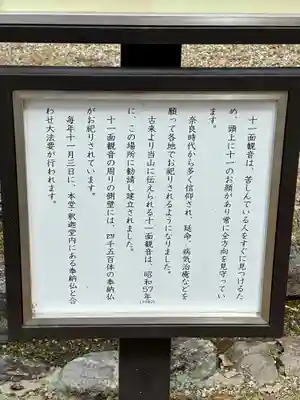 十一面観音は、苦しんでいる人をすぐに見つけるた
め、頭上に十一のお顔があり常に全方向を見守ってい
ます。
奈良時代から多く信仰され、延命、病気治癒などを
願って各地でお祀りされるようになりました。
古来より当山に伝えられる十一面観音は、昭和57年
(1982)
に、この場所に勧請し建立されました。
十一面観音の周りの側壁には、四千五百体の奉納仏
がお祀りされています。
毎年十一月三日に、本堂・釈迦堂内にある奉納仏と合
わせ大法要が行われます。